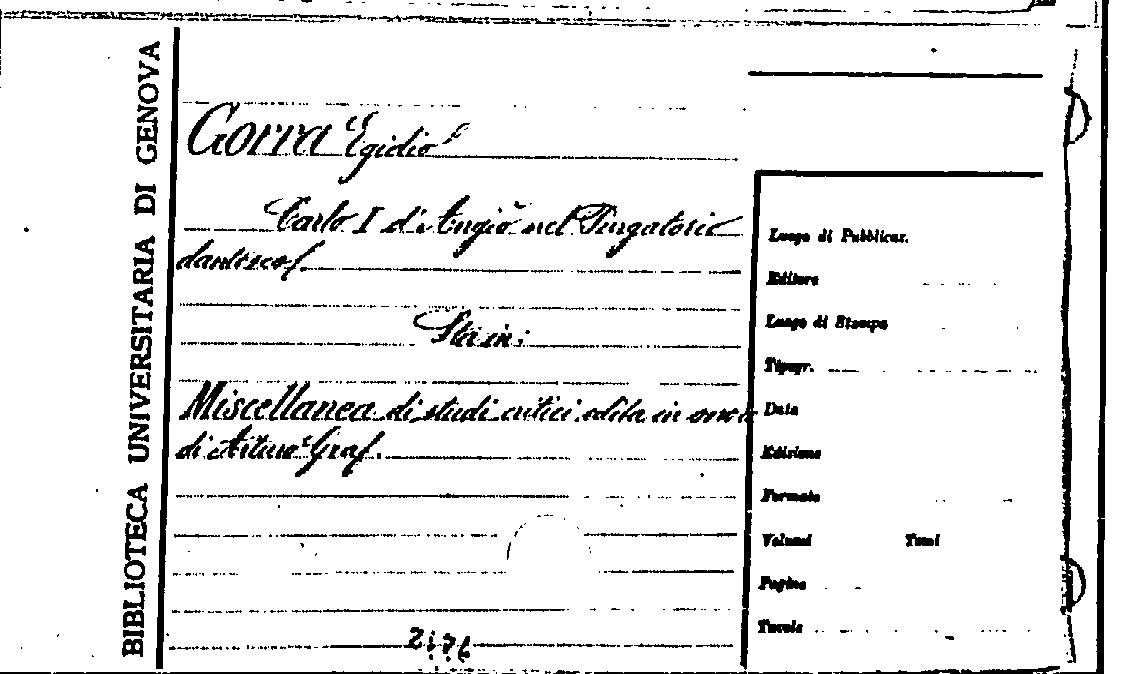 BIBLIOTECA UNIVERSITARIA DI GENOVA
Gorra Egidio
Carlo I d'Angiò nel Purgatorio
dantesco.
Sta in:
Miscellanea di studi critici edita in onore
di Arturo Graf.
Luogo di Pubblicaz.
Editore
Luogo di Stampa
Tipogr.
Data
Edizione
Formato
Volumi Tomi
Pagine
Tavole